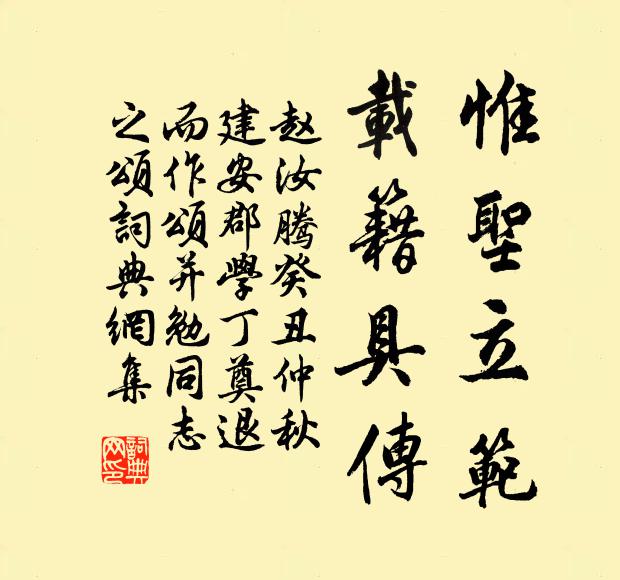 惟聖立範
載籍具傳
赵汝騰癸丑仲秋
建安郡學丁奠退
而作頌并勉同志
之頌詞典網集
詞典網印